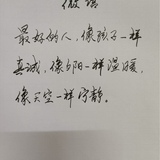 微语
最好的人，像孩子一样
真诚，像夕阳一样温暖，
像天空一样宁静。